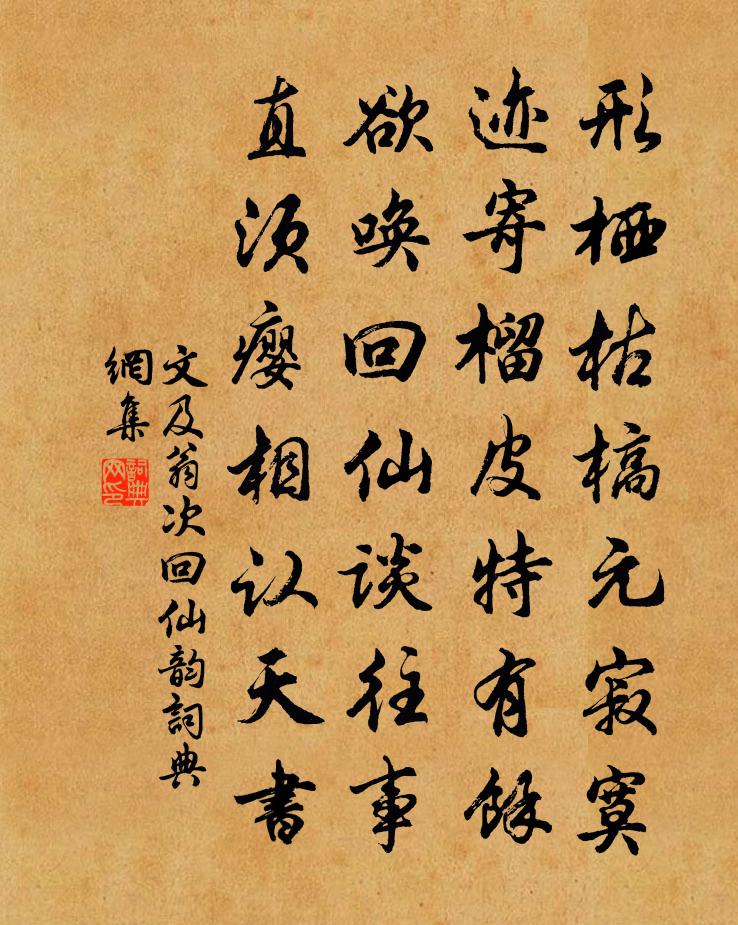 形栖枯槁元寂寞
迹寄榴皮特有馀
欲唤回仙谈往事
直须瘿相认天書
文及翁次回仙韵詞典
網集
詞典网印